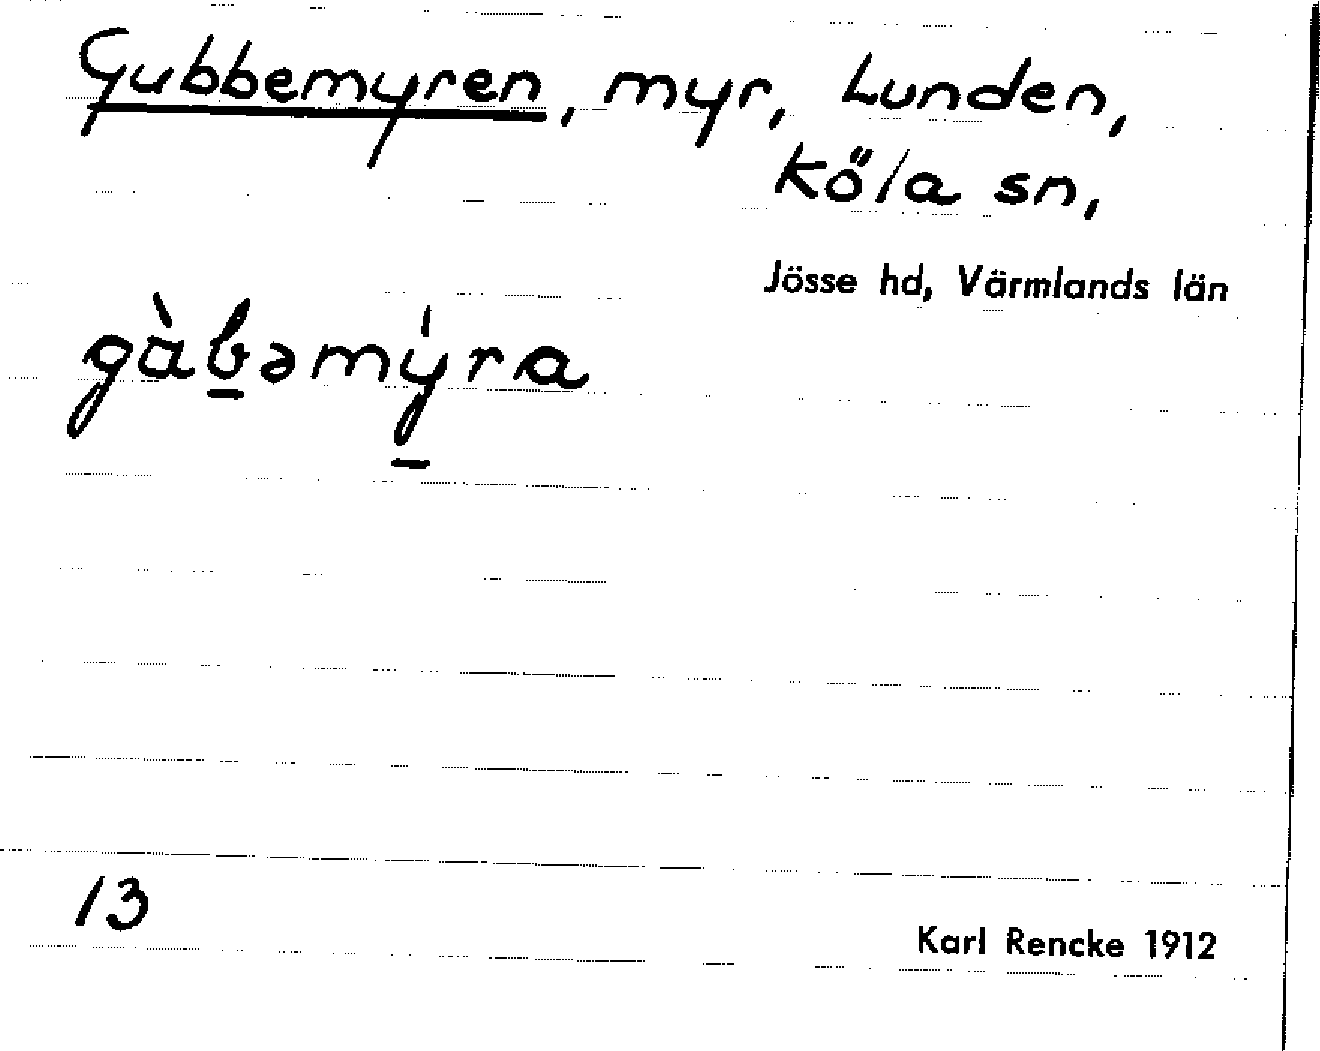 Gubbemyren, myr, Lunden,
Köla sn,
Jösse hd, Värmlands län
gàb̲əmý̲ra
13
Karl Rencke 1912